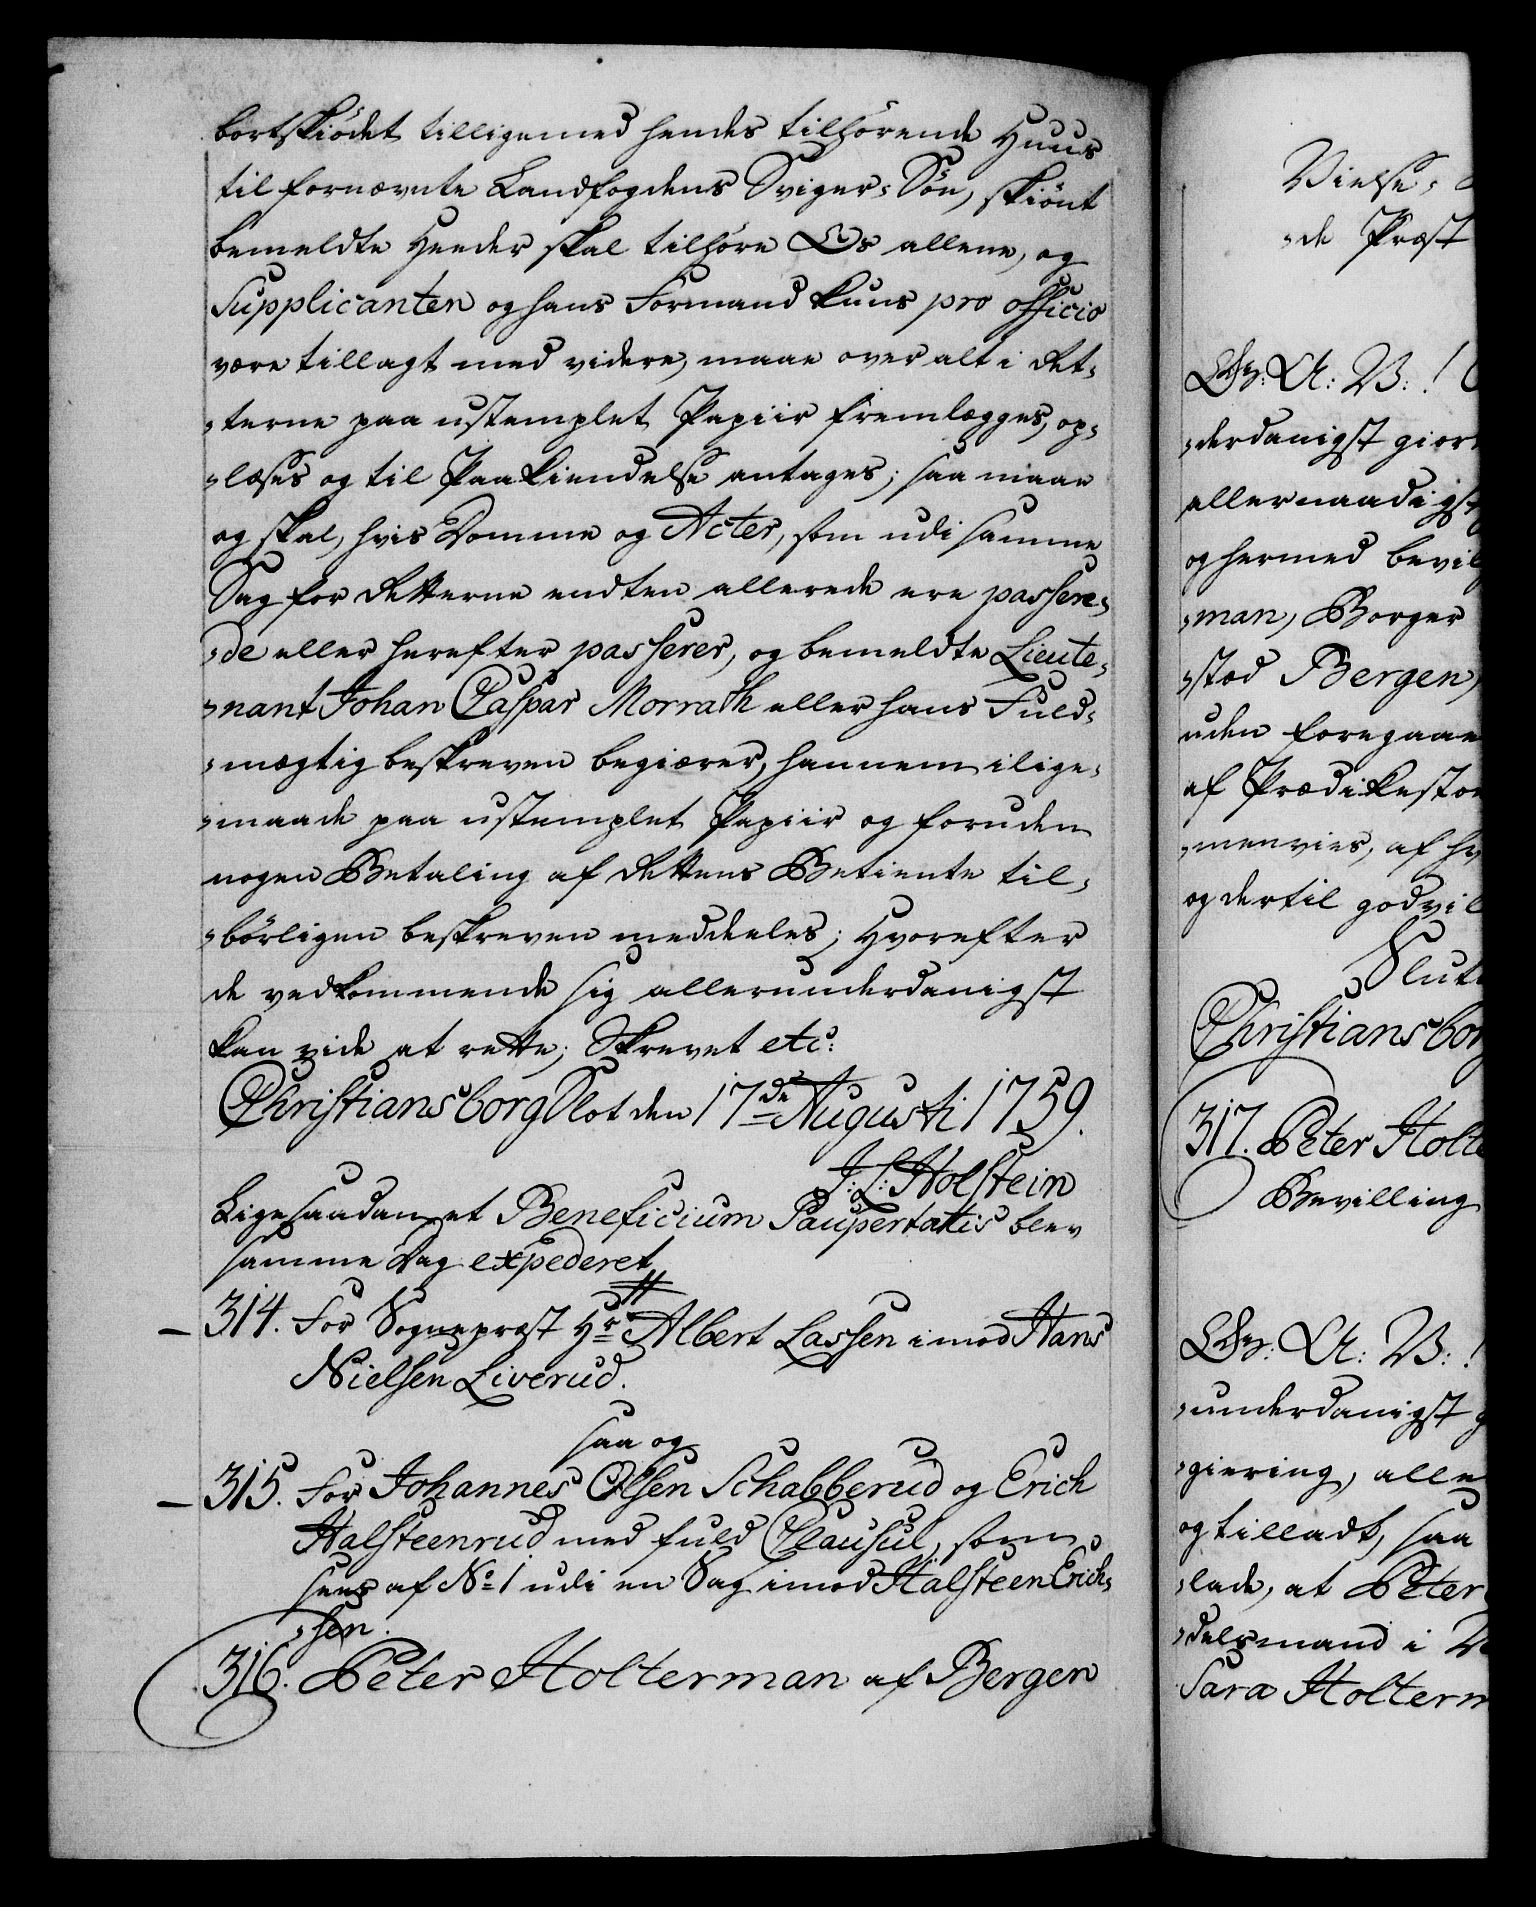 bortskiödet tilligemed hendes tilhörende Huus
til fornævnte Landfogdens Sviger-Sön, skiönt
bemeldte Heeder skal tilhöre Os allene, og
Supplicanten og hans Formand kuns pro officio
være tillagt med videre, maae over alt i Ret-
-terne paa ustemplet Papiir fremlægges, op-
-læses og til Paakiendelse antages; saa maae
og skal, hvis Domme og Acter, som udi samme
Sag for Retterne endten allerede ere passere-
-de eller herefter passerer, og bemeldte Lieute-
-nant Johan Caspar Morrath eller hans Fuld-
-mægtig beskreven begiærer, hannem ilige-
-maade paa ustemplet Papiir og foruden
nogen Betaling af Rettens Betiente til-
-börligen beskreven meddeles; Hvorefter
de vedkommende sig allerunderdanigst
kan vide at rette; Skrevet etc:
Christiansborg Slot den 17de Augusti 1759.
J: L: Holstein
Ligesaadan et Beneficium Paupertatis blev
samme Dag expederet
314. For Sognepræst Hr. Albert Lassen imod Hans
Nielsen Liverud.
saa og
315. For Johannes Olsen Schabberud og Erich
Halsteenrud med fuld Clausul, som
sees af No 1 udi en Sag imod Halsteen Erich-
-sen.
316. Peter Holterman af Bergen
Vielse-
-de Præst
Gr: A: V: !
-derdanigst giort
allernaadigst
og hermed bevil
-man, Borger
-stad Bergen,
uden foregaae
af Prædikestoe
-menvies, af hv
og dertil godvil
Slut
Christiansborg
317. Peter Holte
Bevilling
Gr: A: V: !
-underdanigst g
-giering, alle
og tilladt, saa
-lade, at Peter
-delsmand i
Sara Holterm